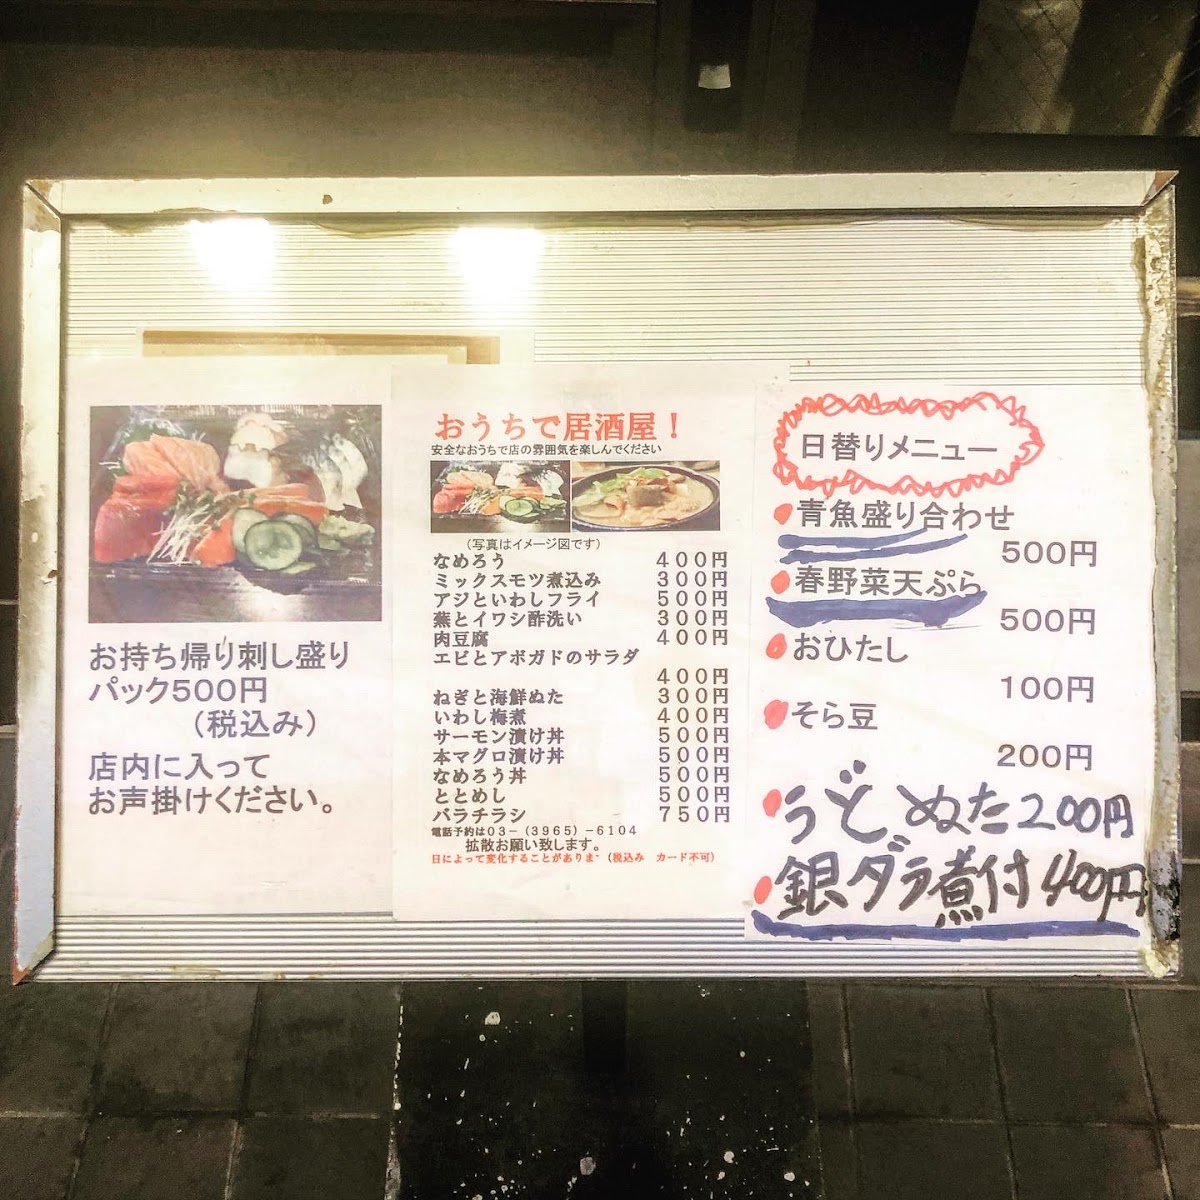 お持ち帰り刺し盛り
パック500円
（税込み）
店内に入って
お声掛けください。
おうちで居酒屋！
安全なおうちで店の雰囲気を楽しんでください
（写真はイメージ図です）
なめろう　400円
ミックスモツ煮込み　300円
アジといわしフライ　500円
蕪とイワシ酢洗い　300円
肉豆腐　400円
エビとアボガドのサラダ
400円
ねぎと海鮮ぬた　300円
いわし梅煮　400円
サーモン漬け丼　500円
本マグロ漬け丼　500円
なめろう丼　500円
ととめし　500円
バラチラシ　750円
電話予約は03-（3965）-6104
拡散お願い致します。
日によって変化することがありま（税込み　カード不可）
日替りメニュー
青魚盛り合わせ
500円
春野菜天ぷら
500円
おひたし
100円
そら豆
200円
うどぬた200円
銀ダラ煮付400円